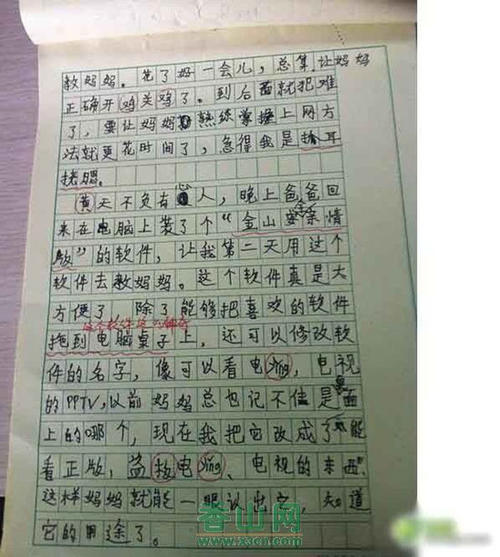 教妈妈。先了好一会儿，总算让妈妈
正确开鸡关鸡了。到后面就犯难
了，要让妈妈熟练掌握上网方
法就更花时间了，急得我是抓耳
挠腮。
黄天不负有心人，晚上爸爸回
来在电脑上装了个“金山安全亲情
版”的软件，让我第二天用这个
软件去教妈妈。这个软件真是大
方便了 除了能够把喜欢的软件
拖到电脑桌子上，还可以修改软
件的名字，像可以看电ying，电视
的PPTV，以前妈妈总也记不住是桌面
上的哪个，现在我把它改成了能
看正版，盗板电ying、电视的东西，
这样妈妈就能一眼认出它，知道
它的用途了。
香山网
www.xscn.com